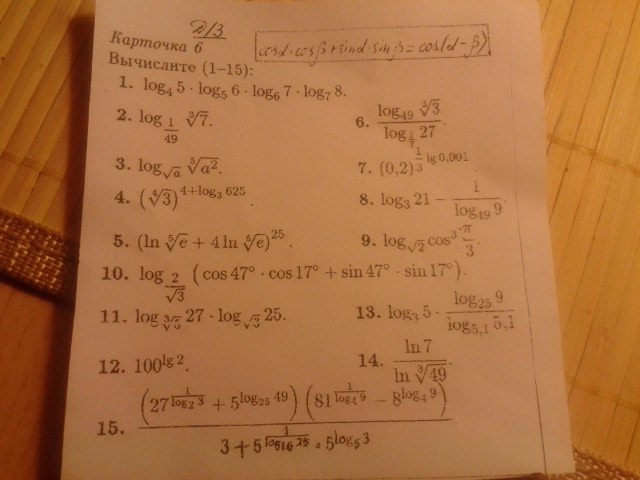 Д/З
Карточка 6
cosα·cosβ+sinα·sinβ=cos(α-β)
Вычислите (1–15):
1. log₄ 5 · log₅ 6 · log₆ 7 · log₇ 8.
2. log_{1/49} ∛7.
6. log₄₉ ∛3 / log_{1/7} 27.
3. log_{√a} ⁵√a².
7. (0,2)^{1/3 lg 0,001}
4. (⁴√3)^{4+log₃ 625}.
8. log₃ 21 − 1/log₄₉ 9.
5. (ln ⁵√e + 4 ln ⁵√e)²⁵.
9. log_{√2} cos³ π/3.
10. log_{2/√3} (cos 47° · cos 17° + sin 47° · sin 17°).
11. 27 · 25.
13. log₃ 5 · log₂₅ 9 / log₅,₁ 5,1
12. 100^{lg 2}.
14. ln 7 / ln ∛49.
15. (27^{1/log₂ 3} + 5^{log₂₅ 49}) (81^{1/log₄ 9} − 8^{log₄ 9})
3 + 5^{1/log₁₆ 25} · 5^{log₅ 3}